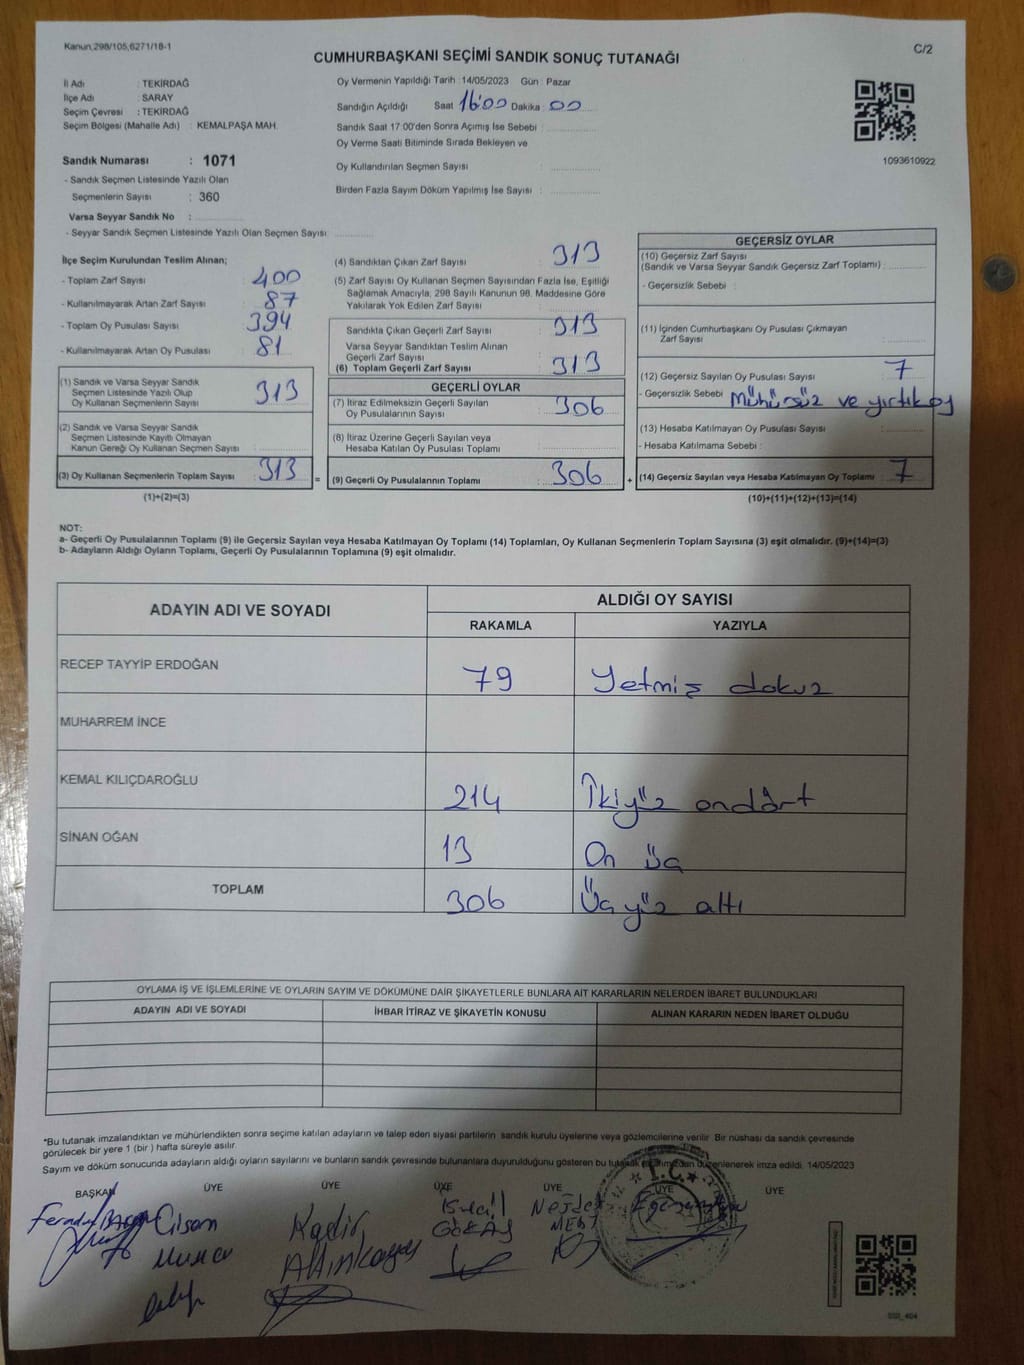 Kanun,298/105,6271/18-1
C/2
CUMHURBAŞKANI SEÇİMİ SANDIK SONUÇ TUTANAĞI
İl Adı : TEKİRDAĞ
İlçe Adı : SARAY
Seçim Çevresi : TEKİRDAĞ
Seçim Bölgesi (Mahalle Adı) : KEMALPAŞA MAH.
Sandık Numarası : 1071
- Sandık Seçmen Listesinde Yazılı Olan
Seçmenlerin Sayısı : 360
Varsa Seyyar Sandık No :
- Seyyar Sandık Seçmen Listesinde Yazılı Olan Seçmen Sayısı:
Oy Vermenin Yapıldığı Tarih : 14/05/2023 Gün : Pazar
Sandığın Açıldığı Saat 16:00 Dakika : 00
Sandık Saat 17:00'den Sonra Açımış İse Sebebi :
Oy Verme Saati Bitiminde Sırada Bekleyen ve
Oy Kullandırılan Seçmen Sayısı :
Birden Fazla Sayım Döküm Yapılmış İse Sayısı :
1093610922
İlçe Seçim Kurulundan Teslim Alınan;
- Toplam Zarf Sayısı : 400
- Kullanılmayarak Artan Zarf Sayısı : 87
- Toplam Oy Pusulası Sayısı : 394
- Kullanılmayarak Artan Oy Pusulası : 81
(1) Sandık ve Varsa Seyyar Sandık
Seçmen Listesinde Yazılı Olup
Oy Kullanan Seçmenlerin Sayısı : 313
(2) Sandık ve Varsa Seyyar Sandık
Seçmen Listesinde Kayıtlı Olmayan
Kanun Gereği Oy Kullanan Seçmen Sayısı :
(3) Oy Kullanan Seçmenlerin Toplam Sayısı : 313 =
(1)+(2)=(3)
(4) Sandıktan Çıkan Zarf Sayısı : 313
(5) Zarf Sayısı Oy Kullanan Seçmen Sayısından Fazla İse, Eşitliği
Sağlamak Amacıyla; 298 Sayılı Kanunun 98. Maddesine Göre
Yakılarak Yok Edilen Zarf Sayısı :
Sandıkta Çıkan Geçerli Zarf Sayısı : 313
Varsa Seyyar Sandıktan Teslim Alınan
Geçerli Zarf Sayısı :
(6) Toplam Geçerli Zarf Sayısı : 313
GEÇERLİ OYLAR
(7) İtiraz Edilmeksizin Geçerli Sayılan
Oy Pusulalarının Sayısı : 306
(8) İtiraz Üzerine Geçerli Sayılan veya
Hesaba Katılan Oy Pusulası Toplamı :
(9) Geçerli Oy Pusulalarının Toplamı : 306 +
GEÇERSİZ OYLAR
(10) Geçersiz Zarf Sayısı
(Sandık ve Varsa Seyyar Sandık Geçersiz Zarf Toplamı) :
- Geçersizlik Sebebi :
(11) İçinden Cumhurbaşkanı Oy Pusulası Çıkmayan
Zarf Sayısı :
(12) Geçersiz Sayılan Oy Pusulası Sayısı : 7
- Geçersizlik Sebebi : Mühürsüz ve yırtık oy
(13) Hesaba Katılmayan Oy Pusulası Sayısı :
- Hesaba Katılmama Sebebi :
(14) Geçersiz Sayılan veya Hesaba Katılmayan Oy Toplamı : 7
(10)+(11)+(12)+(13)=(14)
NOT:
a- Geçerli Oy Pusulalarının Toplamı (9) ile Geçersiz Sayılan veya Hesaba Katılmayan Oy Toplamı (14) Toplamları, Oy Kullanan Seçmenlerin Toplam Sayısına (3) eşit olmalıdır. (9)+(14)=(3)
b- Adayların Aldığı Oyların Toplamı, Geçerli Oy Pusulalarının Toplamına (9) eşit olmalıdır.
ADAYIN ADI VE SOYADI
ALDIĞI OY SAYISI
RAKAMLA YAZIYLA
RECEP TAYYİP ERDOĞAN 79 Yetmiş dokuz
MUHARREM İNCE
KEMAL KILIÇDAROĞLU 214 İkiyüz ondört
SİNAN OĞAN 13 On üç
TOPLAM 306 Üçyüz altı
OYLAMA İŞ VE İŞLEMLERİNE VE OYLARIN SAYIM VE DÖKÜMÜNE DAİR ŞİKAYETLERLE BUNLARA AİT KARARLARIN NELERDEN İBARET BULUNDUKLARI
ADAYIN ADI VE SOYADI İHBAR İTİRAZ VE ŞİKAYETİN KONUSU ALINAN KARARIN NEDEN İBARET OLDUĞU
*Bu tutanak imzalandıktan ve mühürlendikten sonra seçime katılan adayların ve talep eden siyasi partilerin sandık kurulu üyelerine veya gözlemcilerine verilir. Bir nüshası da sandık çevresinde
görülecek bir yere 1 (bir) hafta süreyle asılır.
Sayım ve döküm sonucunda adayların aldığı oyların sayılarını ve bunların sandık çevresinde bulunanlara duyurulduğunu gösteren bu tutanak düzenlenerek imza edildi. 14/05/2023
BAŞKAN ÜYE ÜYE ÜYE ÜYE ÜYE ÜYE
Kadir
Altınkaynak
T.C.